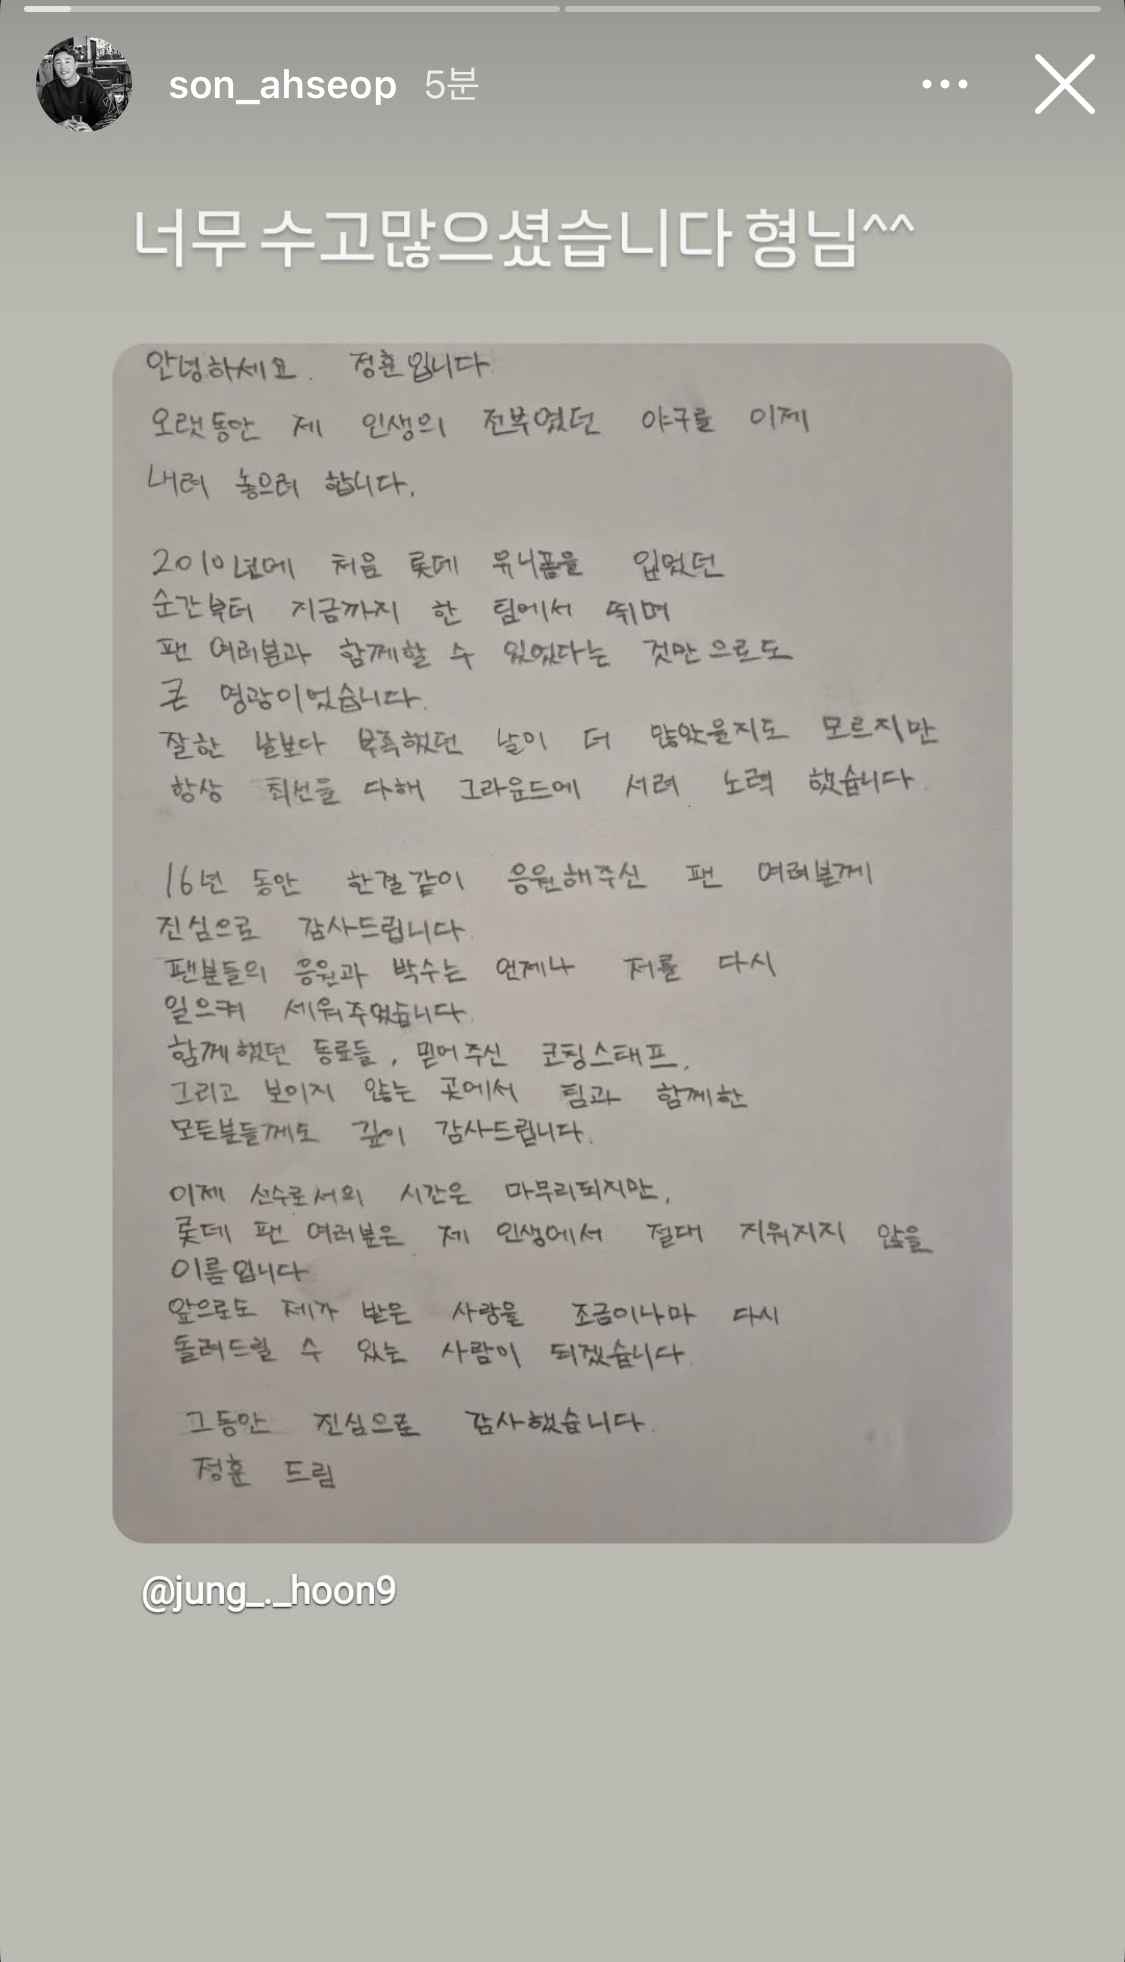 son_ahseop 5분
너무 수고많으셨습니다 형님^^
안녕하세요. 정훈입니다.
오랫동안 제 인생의 전부였던 야구를 이제
내려 놓으려 합니다.
2010년에 처음 롯데 유니폼을 입었던
순간부터 지금까지 한 팀에서 뛰며
팬 여러분과 함께할 수 있었다는 것만으로도
큰 영광이었습니다.
잘한 날보다 부족했던 날이 더 많았을지도 모르지만
항상 최선을 다해 그라운드에 서려 노력 했습니다.
16년 동안 한결같이 응원해주신 팬 여러분께
진심으로 감사드립니다.
팬분들의 응원과 박수는 언제나 저를 다시
일으켜 세워주었습니다.
함께했던 동료들, 믿어주신 코칭스태프,
그리고 보이지 않는 곳에서 팀과 함께한
모든분들께도 깊이 감사드립니다.
이제 선수로서의 시간은 마무리되지만,
롯데 팬 여러분은 제 인생에서 절대 지워지지 않을
이름입니다
앞으로도 제가 받은 사랑을 조금이나마 다시
돌려드릴 수 있는 사람이 되겠습니다.
그동안 진심으로 감사했습니다.
정훈 드림
@jung_._hoon9